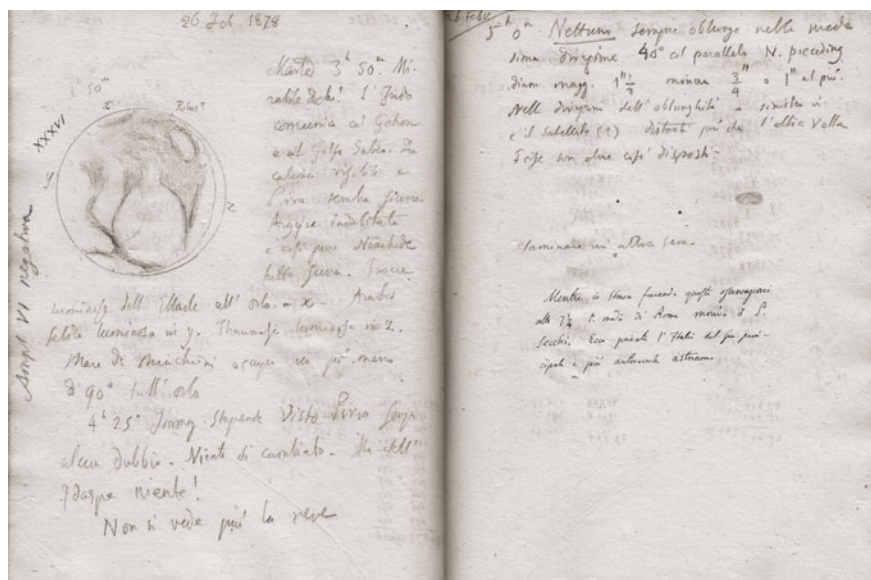 26 Feb 1878
50m
Polus?
XXXVI
y
z
Script VI negativa
Marte) 3h 50m. Mi-
L'Indo
comunica col Gehon
e al Golfo Sabeo. Da
Pirra sembra
Argyre inabilitata
e così pure Noachide
tutta
luminosa dell'Ellade all'orlo = x - Arabia
felice luminosa in y. Thaumasia luminosa in z.
Mare di occupa un po' meno
di 90° sull'orlo
4h 25m stupenda Visto Pirra senza
alcun dubbio. Niente di cambiato. Ma dell'
Idaspe niente!
Non si vede più la neve
26 Febbr
5h 0m Nettuno sempre oblungo nella mede
sima direzione 40° col parallelo N. preceding
diam. magg. 1"½ minore ¾" o 1" al più.
Nella direzione dell'oblunghità a sinistra vi
è il satellite (?) distante più che l'altra volta
e sonvi due così disposti:
Esaminare un'altra sera.
Mentre io stava facendo queste osservazioni
alle 7¼ t. medio di Roma moriva il P.
Secchi. Ecco privata l'Italia del suo prin-
cipale e più autorevole astronomo.